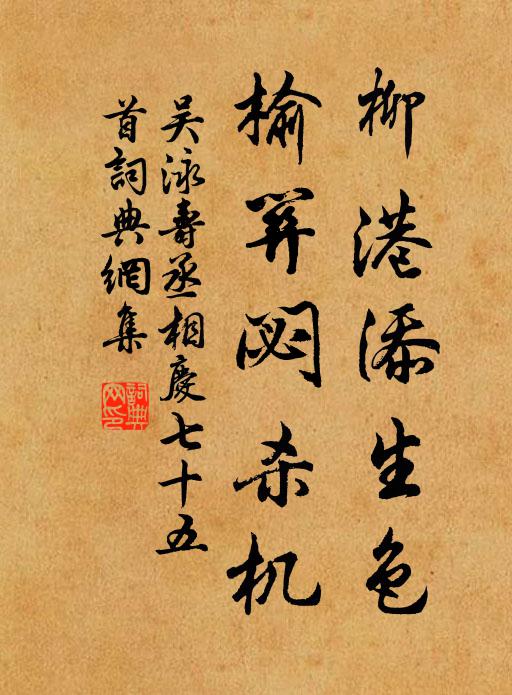 柳港添生色
榆关閟杀机
吴泳壽丞相慶七十五
首詞典網集
詞典
网印